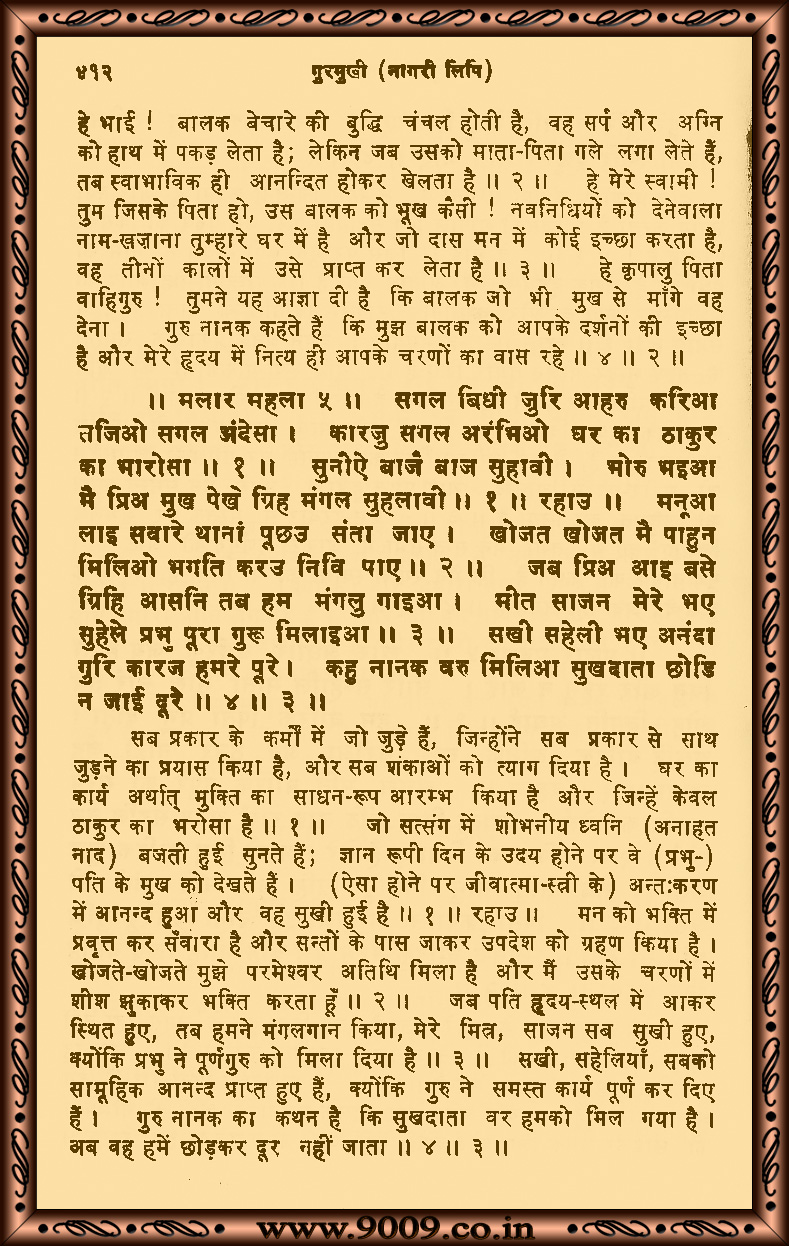 ४१२ गुरमुखी (नागरी लिपि)
हे भाई ! बालक बेचारे की बुद्धि चंचल होती है, वह सर्प और अग्नि
को हाथ में पकड़ लेता है; लेकिन जब उसको माता-पिता गले लगा लेते हैं,
तब स्वाभाविक ही आनन्दित होकर खेलता है ॥ २ ॥ हे मेरे स्वामी !
तुम जिसके पिता हो, उस बालक को भूख कैसी ! नवनिधियों को देनेवाला
नाम-खज़ाना तुम्हारे घर में है और जो दास मन में कोई इच्छा करता है,
वह तीनों कालों में उसे प्राप्त कर लेता है ॥ ३ ॥ हे कृपालु पिता
वाहिगुरु ! तुमने यह आज्ञा दी है कि बालक जो भी मुख से माँगे वह
देना । गुरु नानक कहते हैं कि मुझ बालक को आपके दर्शनों की इच्छा
है और मेरे हृदय में नित्य ही आपके चरणों का वास रहे ॥ ४ ॥ २ ॥
॥ मलार महला ५ ॥ सगल बिधी जुरि आहरु करिआ
तजिओ सगल अंदेसा । कारजु सगल अरंभिओ घर का ठाकुर
का भारोसा ॥ १ ॥ सुनीऐ बाजै बाज सुहावी । भोरु भइआ
मै प्रिअ मुख पेखे ग्रिह मंगल सुहलावी ॥ १ ॥ रहाउ ॥ मनूआ
लाइ सवारे थानां पूछउ संता जाए । खोजत खोजत मै पाहुन
मिलिओ भगति करउ निवि पाए ॥ २ ॥ जब प्रिअ आइ बसे
ग्रिहि आसनि तब हम मंगलु गाइआ । मीत साजन मेरे भए
सुहेले प्रभु पूरा गुरू मिलाइआ ॥ ३ ॥ सखी सहेली भए अनंदा
गुरि कारज हमरे पूरे । कहु नानक वरु मिलिआ सुखदाता छोडि
न जाई दूरे ॥ ४ ॥ ३ ॥
सब प्रकार के कर्मों में जो जुड़े हैं, जिन्होंने सब प्रकार से साथ
जुड़ने का प्रयास किया है, और सब शंकाओं को त्याग दिया है । घर का
कार्य अर्थात् मुक्ति का साधन-रूप आरम्भ किया है और जिन्हें केवल
ठाकुर का भरोसा है ॥ १ ॥ जो सत्संग में शोभनीय ध्वनि (अनाहत
नाद) बजती हुई सुनते हैं; ज्ञान रूपी दिन के उदय होने पर वे (प्रभु-)
पति के मुख को देखते हैं । (ऐसा होने पर जीवात्मा-स्त्री के) अन्तःकरण
में आनन्द हुआ और वह सुखी हुई है ॥ १ ॥ रहाउ ॥ मन को भक्ति में
प्रवृत्त कर सँवारा है और सन्तों के पास जाकर उपदेश को ग्रहण किया है ।
खोजते-खोजते मुझे परमेश्वर अतिथि मिला है और मैं उसके चरणों में
शीश झुकाकर भक्ति करता हूँ ॥ २ ॥ जब पति हृदय-स्थल में आकर
स्थित हुए, तब हमने मंगलगान किया, मेरे मित्र, साजन सब सुखी हुए,
क्योंकि प्रभु ने पूर्णगुरु को मिला दिया है ॥ ३ ॥ सखी, सहेलियाँ, सबको
सामूहिक आनन्द प्राप्त हुए हैं, क्योंकि गुरु ने समस्त कार्य पूर्ण कर दिए
हैं । गुरु नानक का कथन है कि सुखदाता वर हमको मिल गया है ।
अब वह हमें छोड़कर दूर नहीं जाता ॥ ४ ॥ ३ ॥
www.9009.co.in